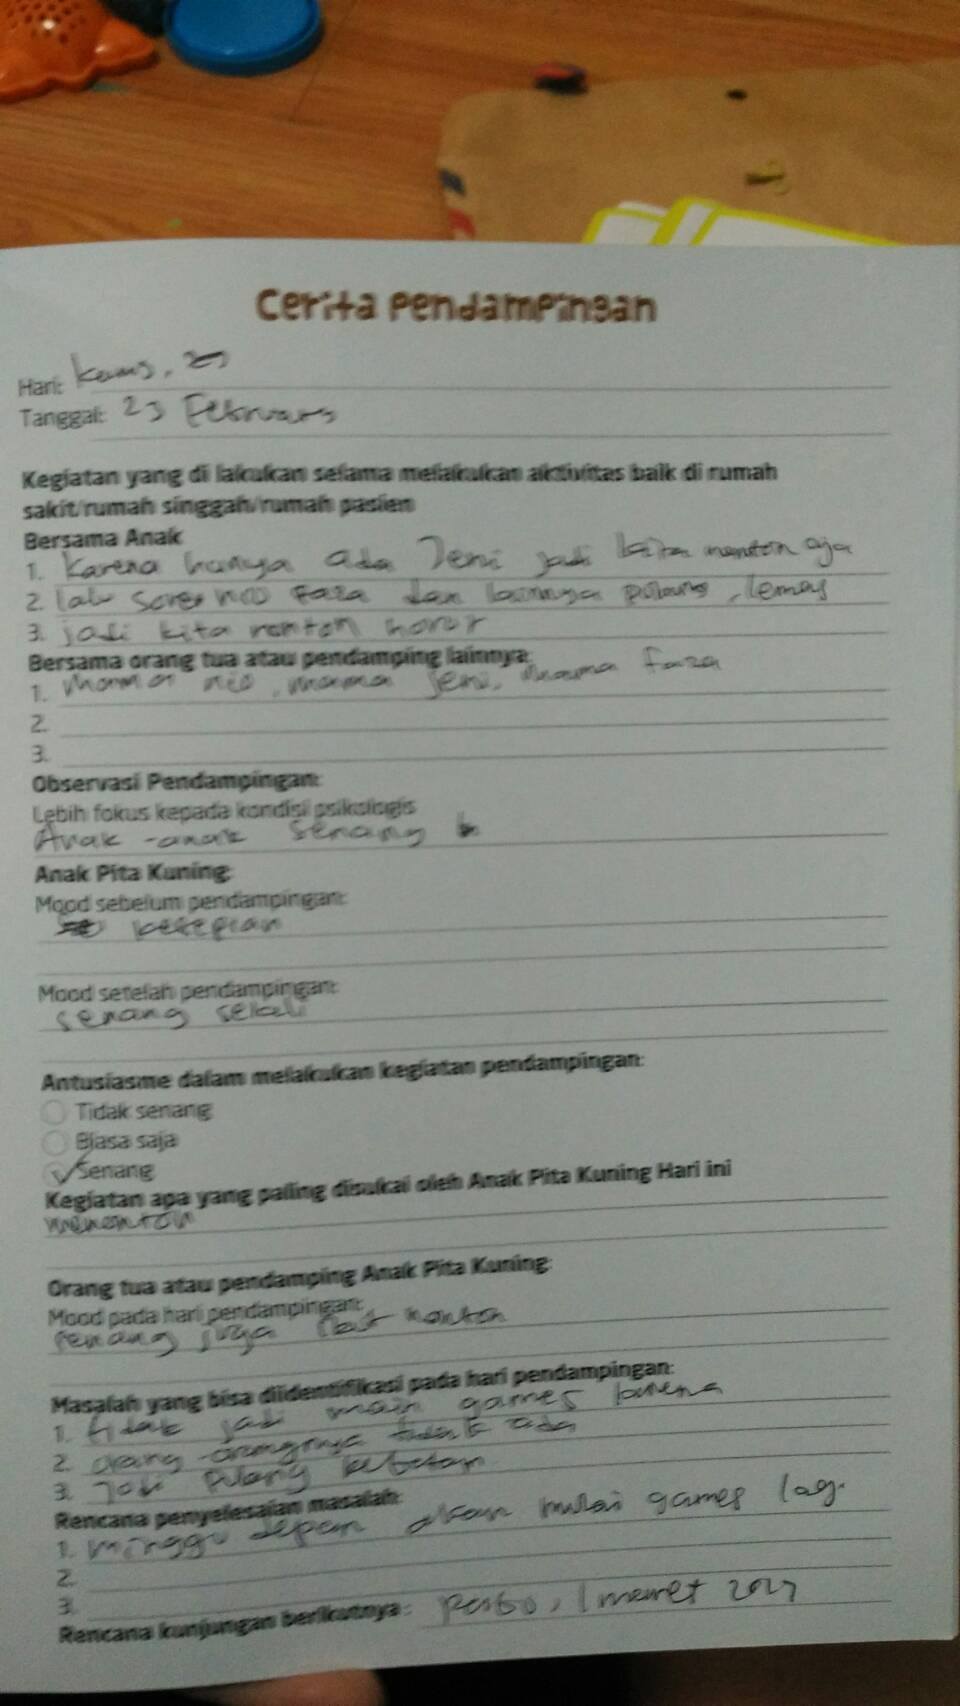 Cerita Pendampingan
Hari: Kamis, 23
Tanggal: 23 Februari
Kegiatan yang di lakukan selama melakukan aktivitas baik di rumah
sakit/rumah singgah/rumah pasien
Bersama Anak
1. Karena hanya ada Jeni jadi kita nonton aja
2. lalu nio Faza dan lainnya pulang, lemas
3. jadi kita nonton horor
Bersama orang tua atau pendamping lainnya:
1. Mama nio, mama Jeni, mama faza
2.
3.
Observasi Pendampingan:
Lebih fokus kepada kondisi psikologis
Anak-anak senang
Anak Pita Kuning:
Mood sebelum pendampingan:
kesepian
Mood setelah pendampingan:
senang sekali
Antusiasme dalam melakukan kegiatan pendampingan:
Tidak senang
Biasa saja
Senang
Kegiatan apa yang paling disukai oleh Anak Pita Kuning Hari ini
menonton
Orang tua atau pendamping Anak Pita Kuning:
Mood pada hari pendampingan:
senang juga nonton
Masalah yang bisa diidentifikasi pada hari pendampingan:
1. tidak jadi main games karena
2. orang-orangnya tidak ada
3. Jadi pulang
Rencana penyelesaian masalah:
1. Minggu depan akan mulai games lagi
2.
3.
Rencana kunjungan berikutnya: Rabo, 1 maret 2017